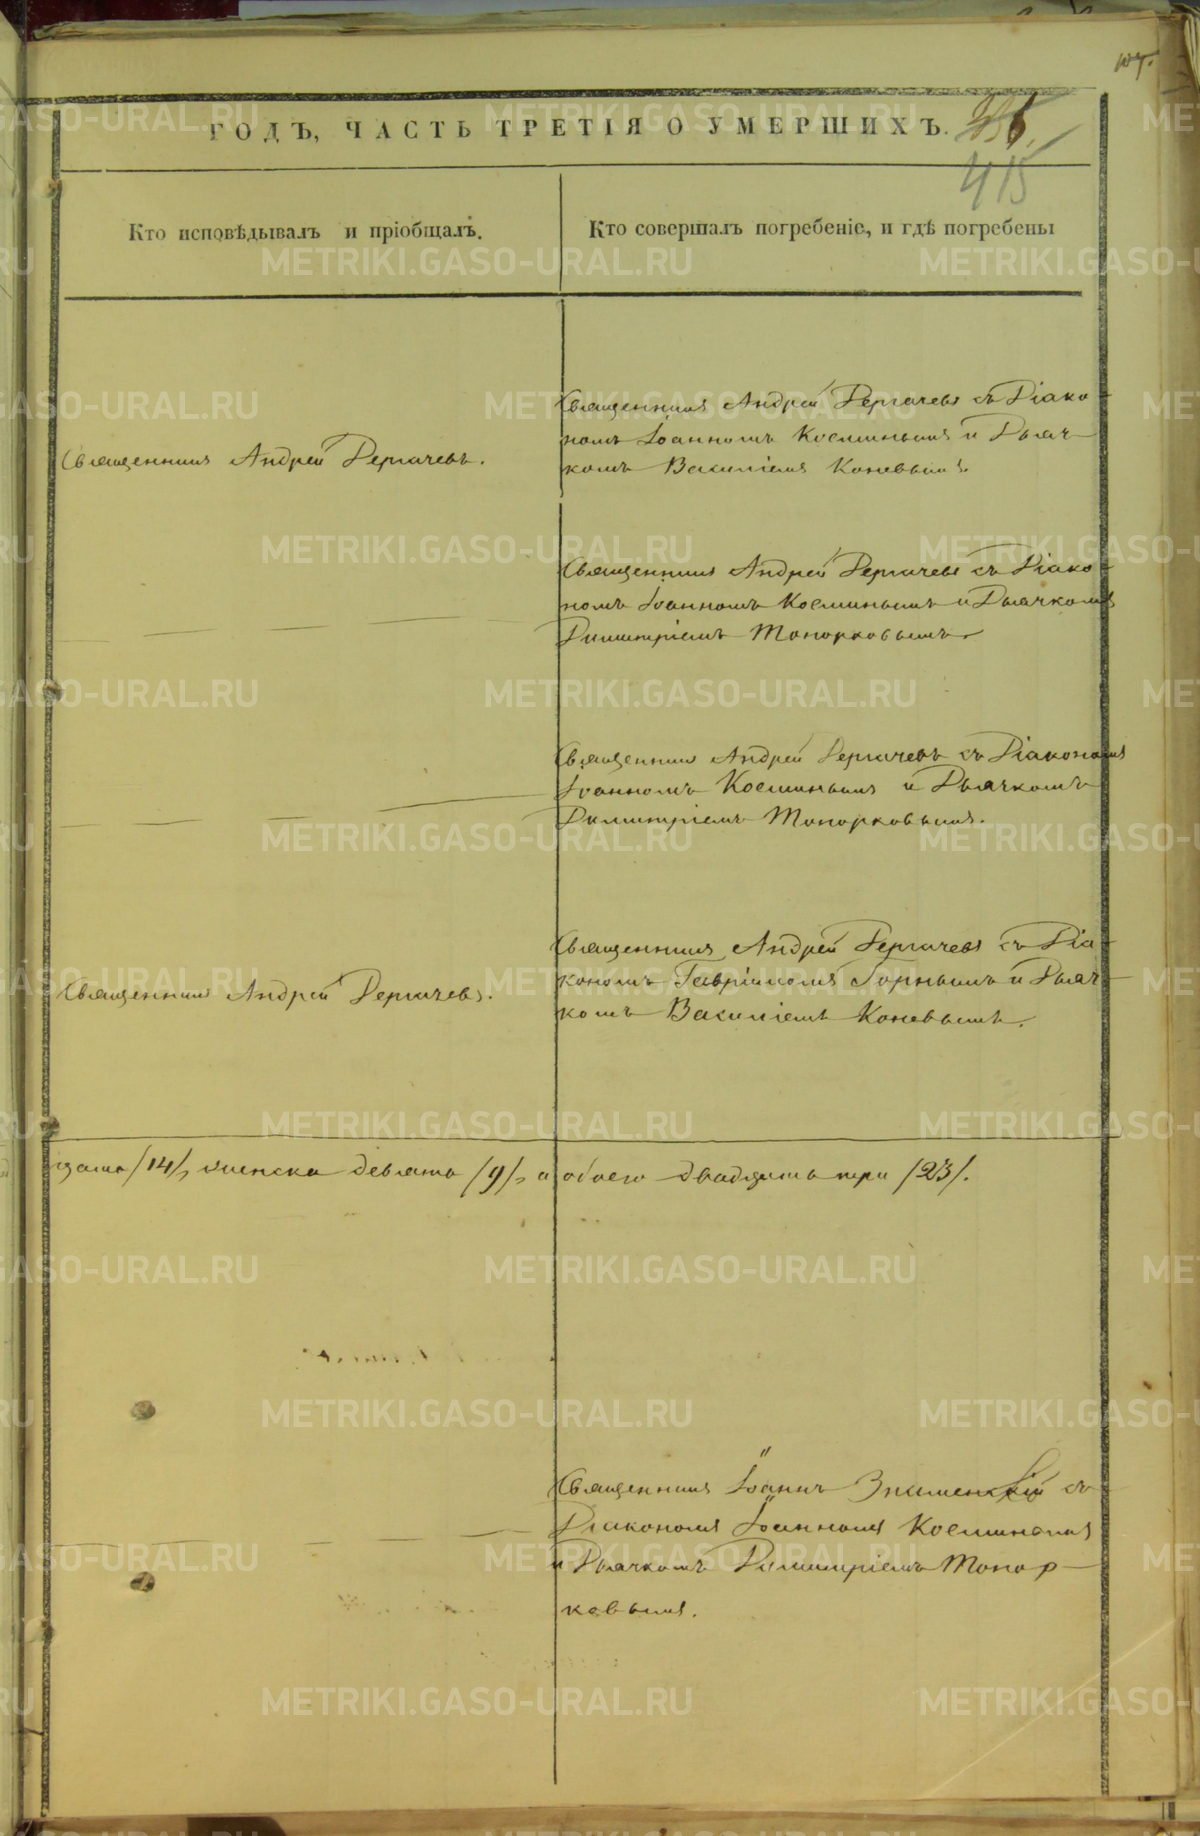 ГОДЪ, ЧАСТЬ ТРЕТІЯ О УМЕРШИХЪ.
415
Кто исповѣдывалъ и пріобщалъ.
Кто совершалъ погребеніе, и гдѣ погребены
Священникъ Андрей Дергачевъ.
Священникъ Андрей Дергачевъ съ Діако-
номъ Іоанномъ Косминымъ и Дьяч-
комъ Василіемъ Коневымъ.
Священникъ Андрей Дергачевъ съ Діако-
номъ Іоанномъ Косминымъ и Дьячкомъ
Димитріемъ Топорковымъ.
Священникъ Андрей Дергачевъ съ Діакономъ
Іоанномъ Косминымъ и Дьячкомъ
Димитріемъ Топорковымъ.
Священникъ Андрей Дергачевъ.
Священникъ Андрей Дергачевъ съ Діа-
кономъ Гавріиломъ Горнымъ и Дьяч-
комъ Василіемъ Коневымъ.
цать /14/, женска девять /9/, а обоего двадцать три /23/.
Священникъ Іоаннъ Знаменскій съ
Діакономъ Іоанномъ Косминымъ
и Дьячкомъ Димитріемъ Топор-
ковымъ.
METRIKI.GASO-URAL.RU